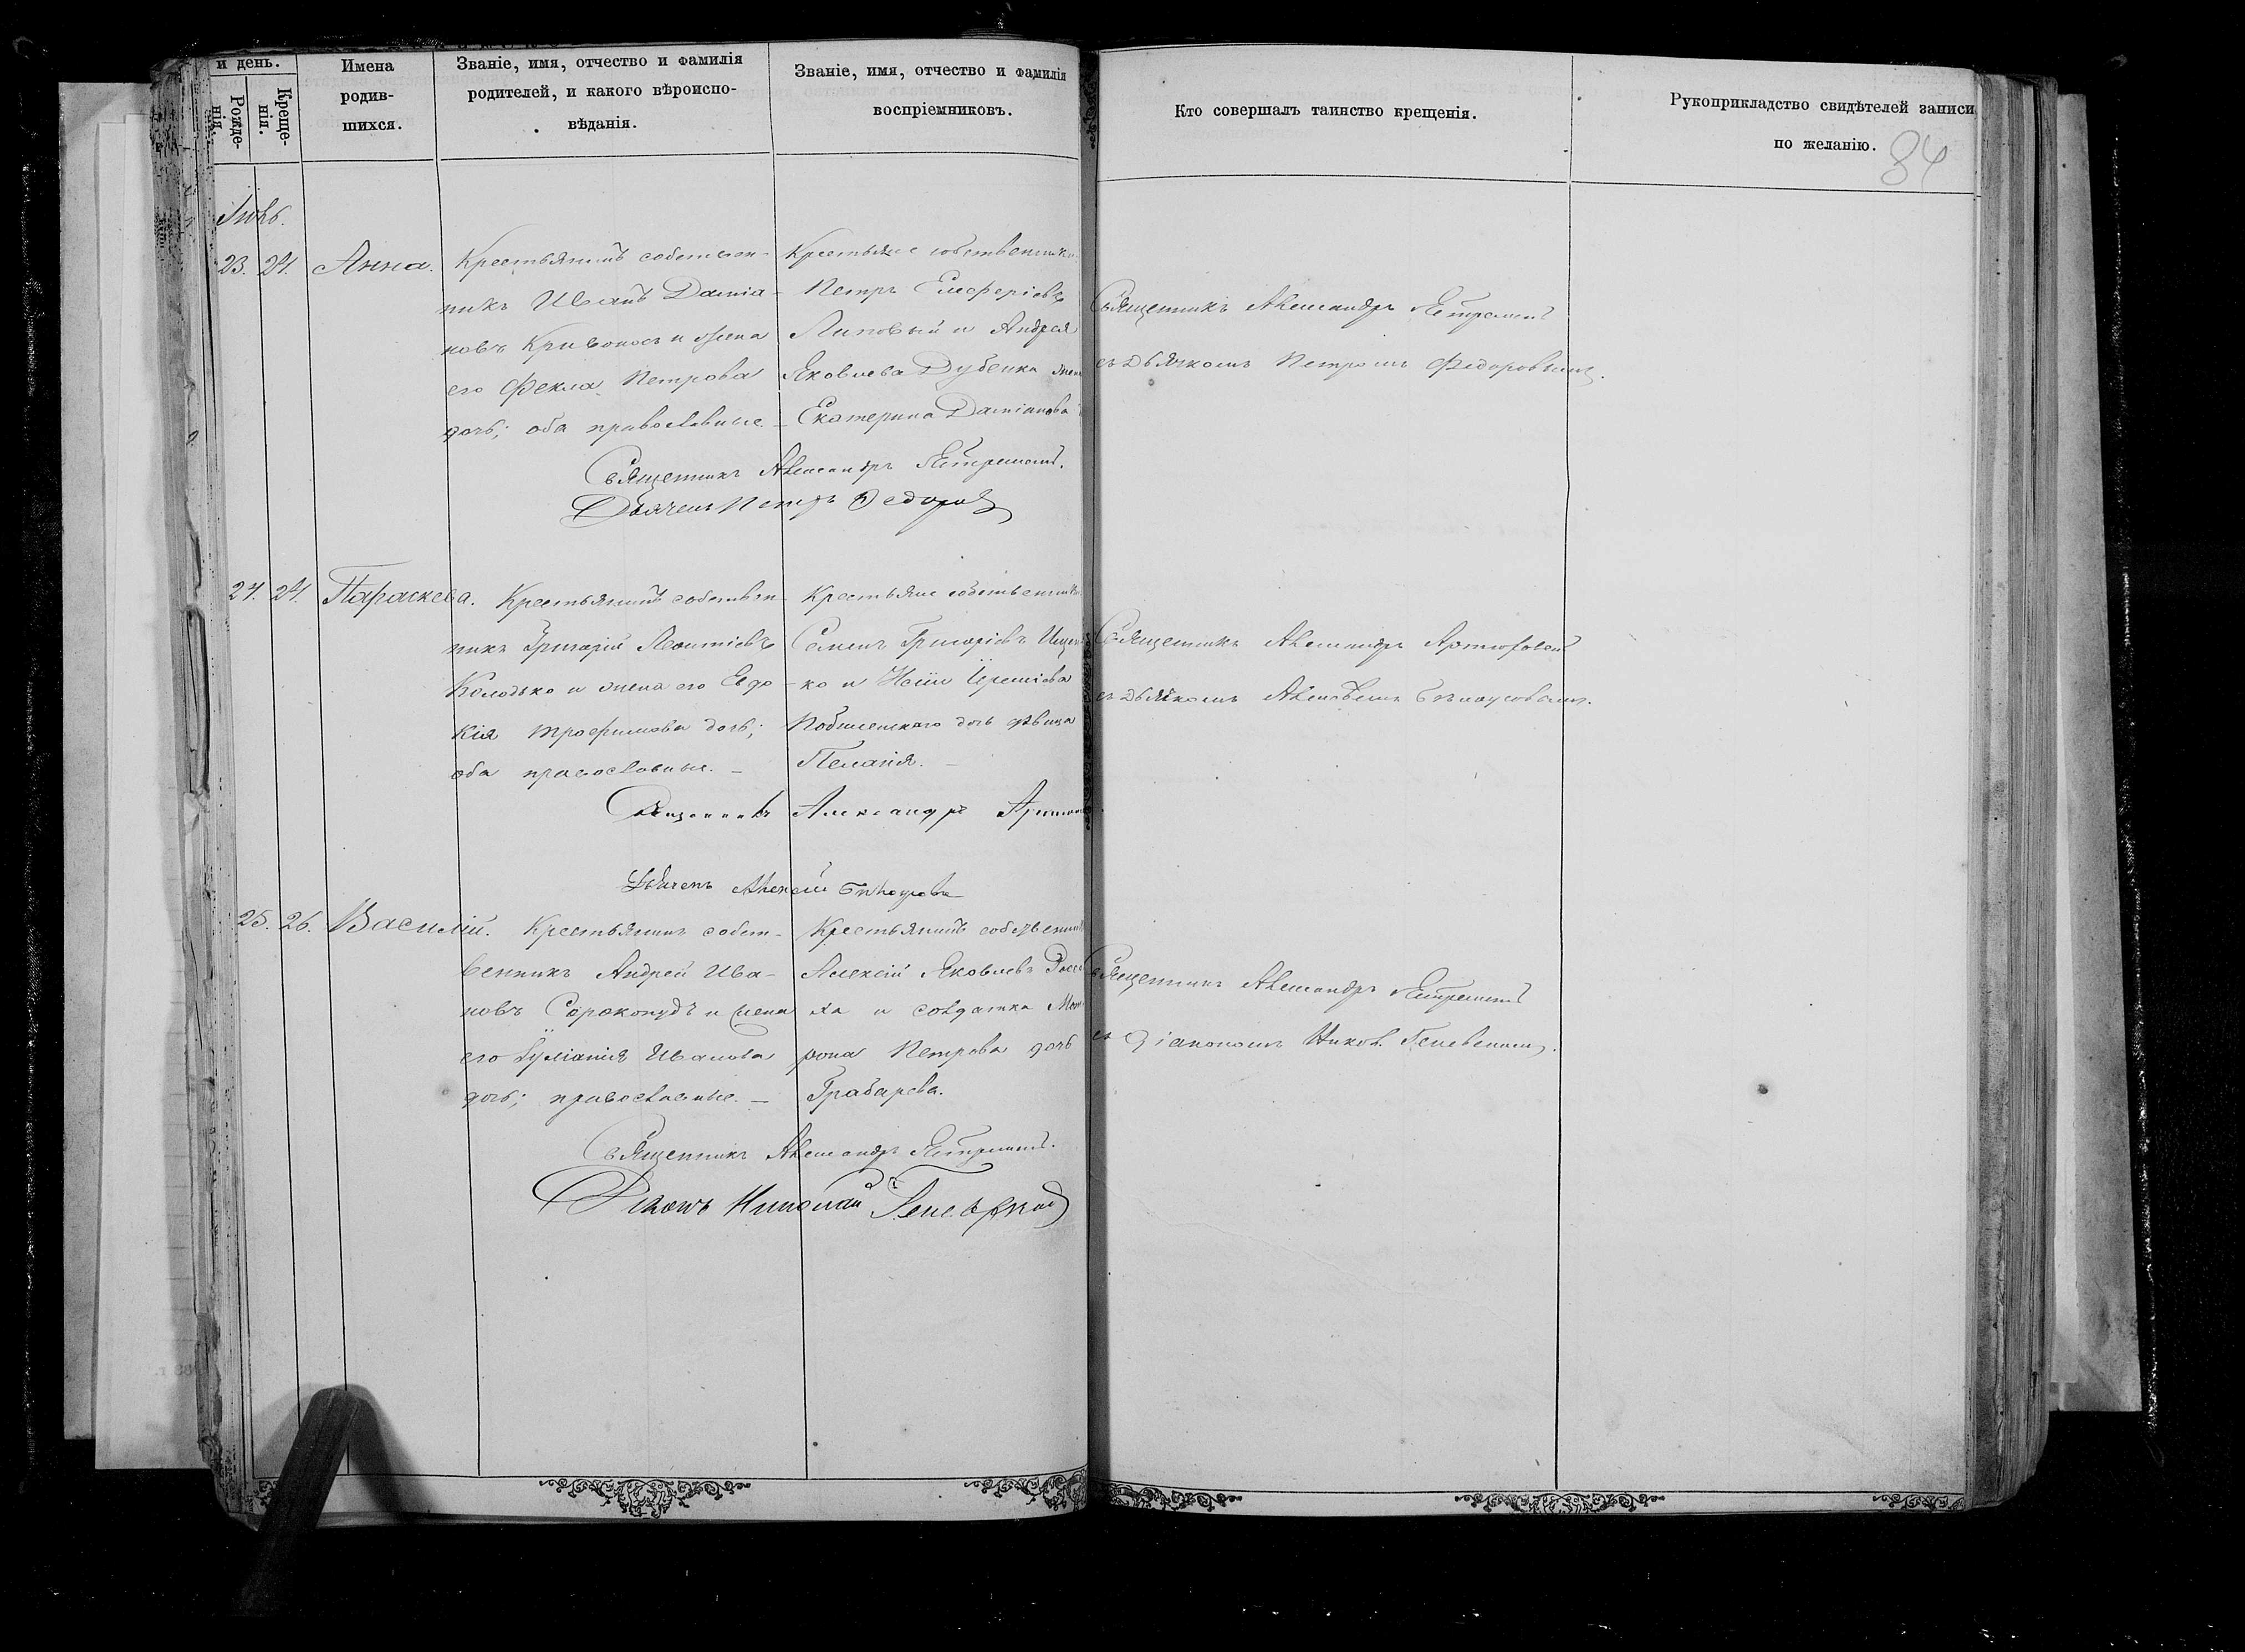 и день.
Рожде-
нія.
Креще-
нія.
Имена
родив-
шихся.
Званіе, имя, отчество и фамилія
родителей, и какого вѣроиспо-
вѣданія.
Званіе, имя, отчество и фамилія
воспріемниковъ.
Кто совершалъ таинство крещенія.
Рукоприкладство свидѣтелей записи
по желанію.
84
23. 24. Анна.
Крестьянинъ собствен-
никъ Иванъ Даміа-
новъ Кривоносъ и жена
его Фекла Петрова
дочь; оба православные.
Крестьяне собственники
Петръ Елеферіевъ
Липовый и Андрея
Яковлева Дубенка жена
Екатерина Даміанова
Священникъ Александръ
съ дьячкомъ Петромъ Федоровымъ.
Священникъ Александръ
Дьячекъ Петръ Федоровъ
24. 24. Параскева.
Крестьянинъ собствен-
никъ Григорій Леонтіевъ
Колодько и жена его Евдо-
кія Трофимова дочь;
оба православные. —
Крестьяне собственники
Семенъ Григоріевъ
ко и
дочь дѣвица
Пелагія. —
Священникъ Александръ
съ дьячкомъ Алексѣемъ
Священникъ Александръ
Дьячекъ Алексѣй
25. 26. Василій.
Крестьянинъ собст-
венникъ Андрей Ива-
новъ Сорокопудъ и жена
его Іуліанія Иванова
дочь; православные. —
Крестьянинъ собственникъ
Алексій Яковлевъ
ха и солдатка Мат-
рона Петрова дочь
Грабарева.
Священникъ Александръ
съ діакономъ Никол.
Священникъ Александръ
Діаконъ Николай